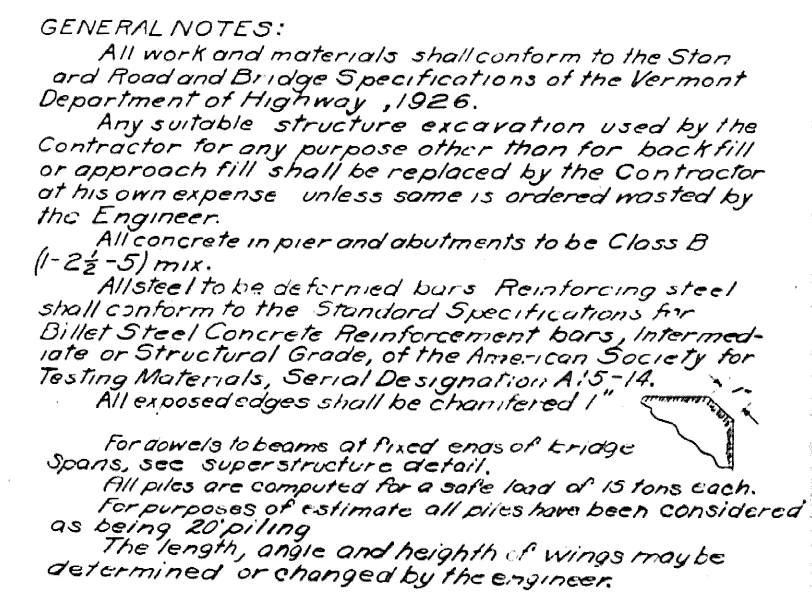 GENERAL NOTES:
All work and materials shall conform to the Stan
ard Road and Bridge Specifications of the Vermont
Department of Highway ,1926.
Any suitable structure excavation used by the
Contractor for any purpose other than for backfill
or approach fill shall be replaced by the Contractor
at his own expense unless same is ordered wasted by
the Engineer.
All concrete in pier and abutments to be Class B
(1-2½-5) mix.
All steel to be deformed bars Reinforcing steel
shall conform to the Standard Specifications for
Billet Steel Concrete Reinforcement bars, Intermed-
iate or Structural Grade, of the American Society for
Testing Materials, Serial Designation A15-14.
All exposed edges shall be chamfered 1"
For dowels to beams at fixed ends of bridge
Spans, see superstructure detail.
All piles are computed for a safe load of 15 tons each.
For purposes of estimate all piles have been considered
as being 20' piling
The length, angle and heighth of wings may be
determined or changed by the engineer.